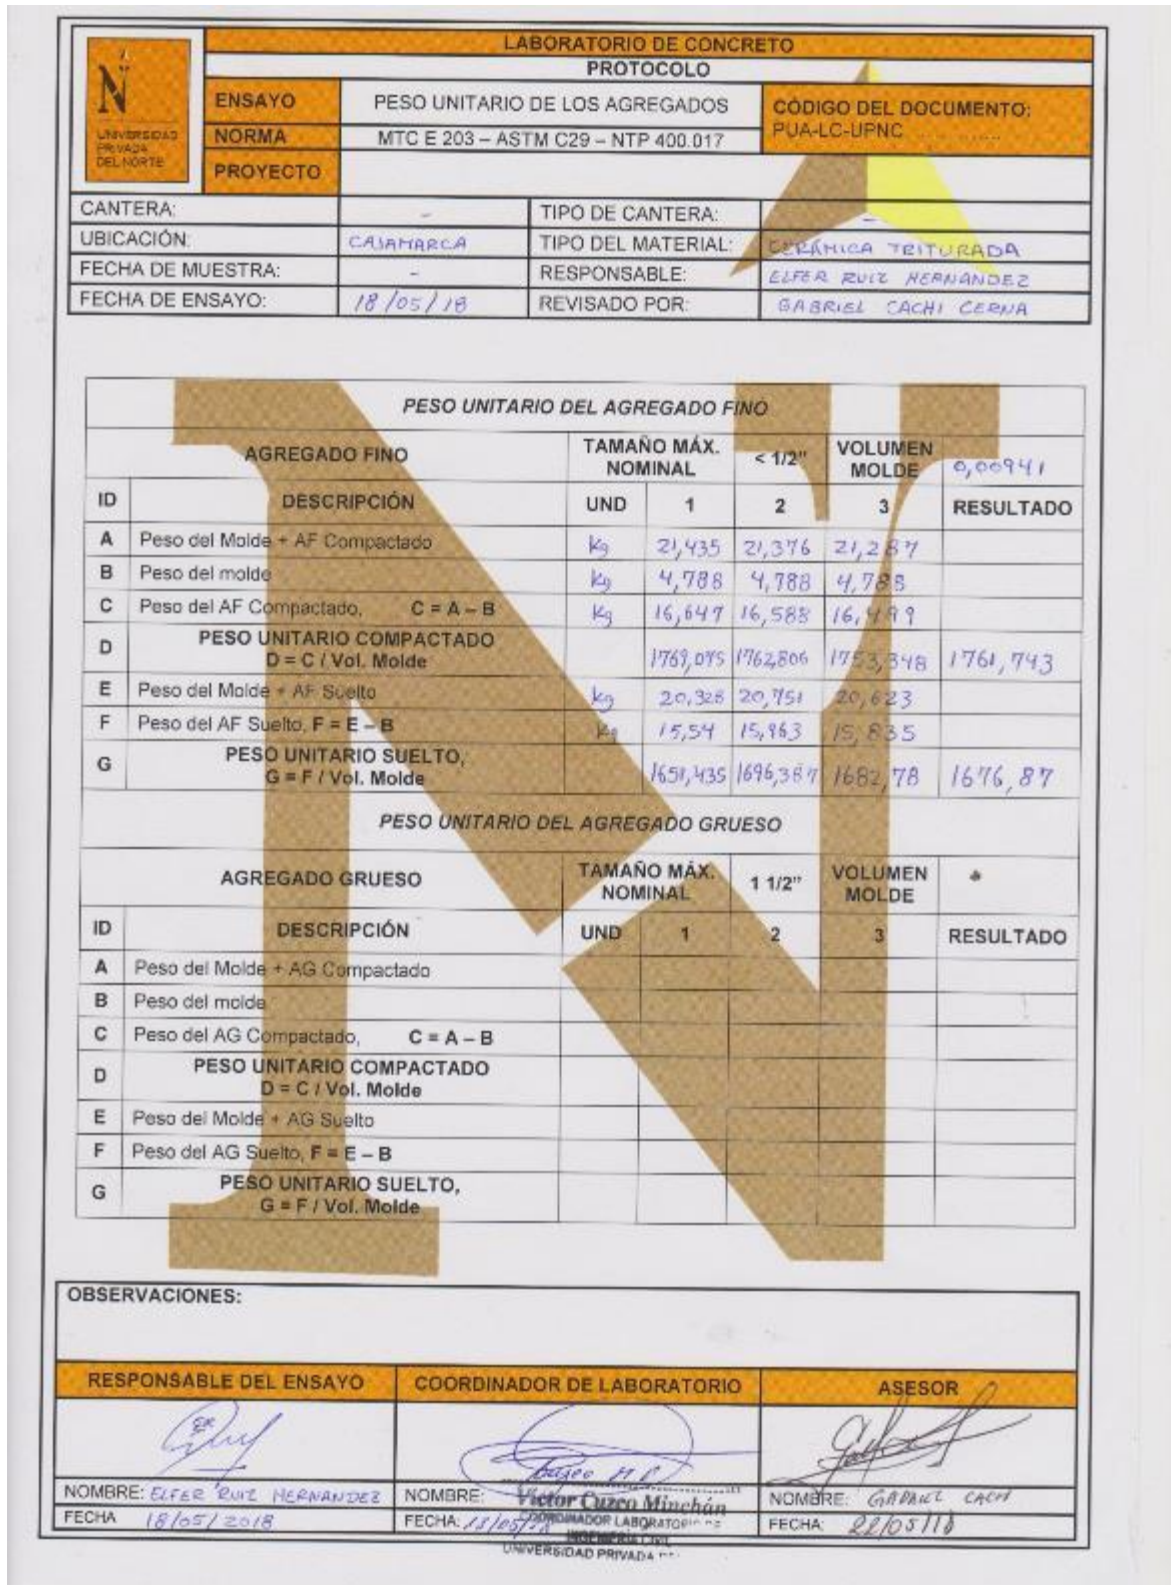 LABORATORIO DE CONCRETO
PROTOCOLO
N
UNIVERSIDAD
PRIVADA
DEL NORTE
ENSAYO PESO UNITARIO DE LOS AGREGADOS CÓDIGO DEL DOCUMENTO:
NORMA MTC E 203 – ASTM C29 – NTP 400.017 PUA-LC-UPNC
PROYECTO
CANTERA: - TIPO DE CANTERA: -
UBICACIÓN: CAJAMARCA TIPO DEL MATERIAL: CERÁMICA TRITURADA
FECHA DE MUESTRA: - RESPONSABLE: ELFER RUIZ HERNANDEZ
FECHA DE ENSAYO: 18/05/18 REVISADO POR: GABRIEL CACHI CERNA
PESO UNITARIO DEL AGREGADO FINO
AGREGADO FINO TAMAÑO MÁX. NOMINAL < 1/2" VOLUMEN MOLDE 0,00941
ID DESCRIPCIÓN UND 1 2 3 RESULTADO
A Peso del Molde + AF Compactado kg 21,435 21,376 21,287
B Peso del molde kg 4,788 4,788 4,788
C Peso del AF Compactado, C = A – B kg 16,647 16,588 16,499
D PESO UNITARIO COMPACTADO
D = C / Vol. Molde 1769,075 1762,806 1753,348 1761,743
E Peso del Molde + AF Suelto kg 20,328 20,751 20,623
F Peso del AF Suelto, F = E – B kg 15,54 15,963 15,835
G PESO UNITARIO SUELTO,
G = F / Vol. Molde 1651,435 1696,387 1682,78 1676,87
PESO UNITARIO DEL AGREGADO GRUESO
AGREGADO GRUESO TAMAÑO MÁX. NOMINAL 1 1/2" VOLUMEN MOLDE
ID DESCRIPCIÓN UND 1 2 3 RESULTADO
A Peso del Molde + AG Compactado
B Peso del molde
C Peso del AG Compactado, C = A – B
D PESO UNITARIO COMPACTADO
D = C / Vol. Molde
E Peso del Molde + AG Suelto
F Peso del AG Suelto, F = E – B
G PESO UNITARIO SUELTO,
G = F / Vol. Molde
OBSERVACIONES:
RESPONSABLE DEL ENSAYO COORDINADOR DE LABORATORIO ASESOR
NOMBRE: ELFER RUIZ HERNANDEZ NOMBRE: Victor Cuzco Minchán NOMBRE: GABRIEL CACHI
COORDINADOR LABORATORIO
FECHA 18/05/2018 FECHA: 18/05/18 FECHA: 22/05/18
INGENIERIA CIVIL
UNIVERSIDAD PRIVADA